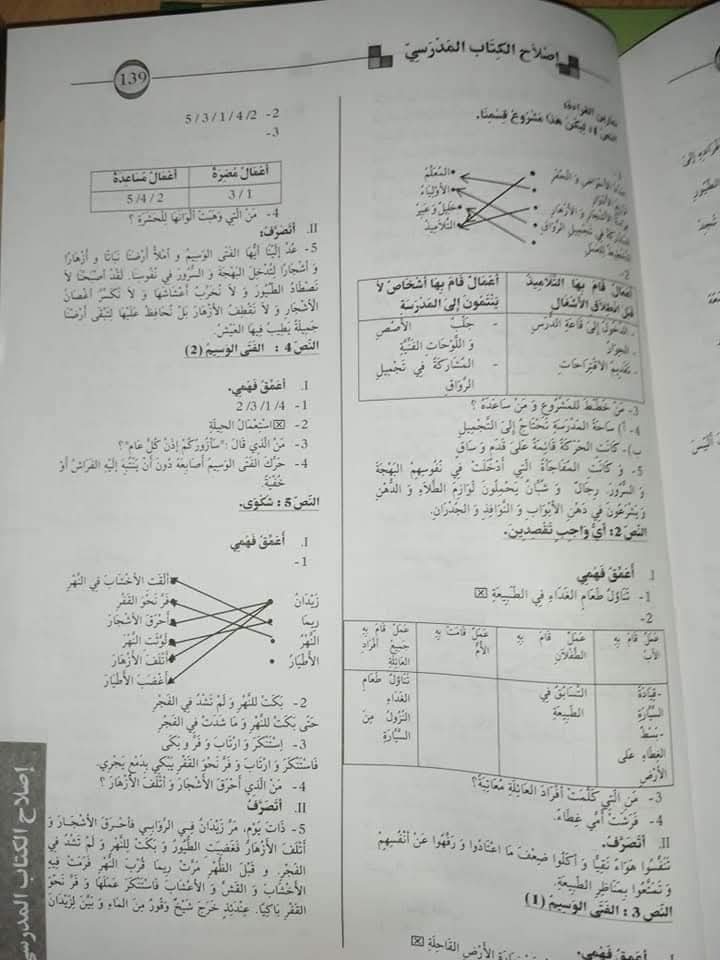 إصْلاَح الكِتَاب المَدْرَسِيّ
139
تمارين القراءة:
النص 1: لِيَكُنْ هَذَا مَشْرُوعَ قِسْمِنَا.
1-
المُعَلِّمُ
الأَوْلِيَاءُ
خَلِيلٌ وَ عَبِيرُ
التَّلاَمِيذُ
2-
أَعْمَالٌ قَامَ بِهَا التَّلاَمِيذُ قَبْلَ انْطِلاَقِ الأَشْغَالِ
أَعْمَالٌ قَامَ بِهَا أَشْخَاصٌ لاَ يَنْتَمُونَ إِلَى المَدْرَسَةِ
- الدُّخُولُ إِلَى قَاعَةِ الدَّرْسِ
- الحِوَارُ
- تَقْدِيمُ الاقْتِرَاحَاتِ
- جَلْبُ الأُصُصِ وَ اللَّوْحَاتِ الفَنِّيَّةِ
- المُشَارَكَةُ فِي تَجْمِيلِ الرِّوَاقِ
3- مَنْ خَطَّطَ لِلمَشْرُوعِ وَ مَنْ سَاعَدَهُ ؟
4- أ) سَاحَةُ المَدْرَسَةِ تَحْتَاجُ إِلَى التَّجْمِيلِ
ب)- كَانَتِ الحَرَكَةُ قَائِمَةً عَلَى قَدَمٍ وَ سَاقٍ
5- وَ كَانَتِ المُفَاجَأَةُ الَّتِي أَدْخَلَتْ فِي نُفُوسِهِمْ البَهْجَةَ
وَ السُّرُورَ. رِجَالٌ وَ شُبَّانٌ يَحْمِلُونَ لَوَازِمَ الطِّلاَءِ وَ الدَّهْنِ
وَ يَشْرَعُونَ فِي دَهْنِ الأَبْوَابِ وَ النَّوَافِذِ وَ الجُدْرَانِ.
النص 2: أَيَّ وَاجِبٍ تَقْصِدِينَ.
I. أُعَمِّقُ فَهْمِي
1- تَنَاوُلُ طَعَامِ الغَدَاءِ فِي الطَّبِيعَةِ ☒
2-
عَمَلٌ قَامَ بِهِ الأَبُ
عَمَلٌ قَامَ بِهِ الطِّفْلاَنِ
عَمَلٌ قَامَتْ بِهِ الأُمُّ
عَمَلٌ قَامَ بِهِ جَمِيعُ أَفْرَادِ العَائِلَةِ
-قِيَادَةُ السَّيَّارَةِ
-بَسْطُ الغِطَاءِ عَلَى الأَرْضِ
التَّسَابُقُ فِي الطَّبِيعَةِ
تَنَاوُلُ طَعَامِ الغَدَاءِ
النُّزُولُ مِنَ السَّيَّارَةِ
3- مَنِ الَّتِي كَلَّمَتْ أَفْرَادَ العَائِلَةِ مُعَاتِبَةً؟
4- فَرَشَتْ أُمِّي غِطَاءً.
II. أَتَصَرَّفُ.
تَنَفَّسُوا هَوَاءً نَقِيًّا وَ أَكَلُوا ضِعْفَ مَا اعْتَادُوا وَ رَفَّهُوا عَنْ أَنْفُسِهِمْ
وَ تَمَتَّعُوا بِمَنَاظِرِ الطَّبِيعَةِ.
النص 3 : الفَتَى الوَسِيمُ (1)
I. أُعَمِّقُ فَهْمِي.
الأَرْضِ القَاحِلَةِ ☒
2- 2/ 4/ 1/ 3/ 5
3-
أَعْمَالٌ مُضِرَّةٌ
أَعْمَالٌ مُسَاعِدَةٌ
1 / 3
2 / 4/ 5
4- مَنْ الَّتِي وَهَبَتْ أَلْوَانَهَا لِلْحَشَرَةِ ؟
II. أَتَصَرَّفُ:
5- عُدْ إِلَيْنَا أَيُّهَا الفَتَى الوَسِيم وَ امْلأْ أَرْضَنَا نَبَاتًا وَ أَزْهَارًا
وَ أَشْجَارًا لِتُدْخِلَ البَهْجَةَ وَ السُّرُورَ فِي نُفُوسِنَا. لَقَدْ أَصْبَحْنَا لاَ
نَصْطَادُ الطُّيُورَ وَ لاَ نُخَرِّبُ أَعْشَاشَهَا وَ لاَ نَكْسِرُ أَغْصَانَ
الأَشْجَارِ وَ لاَ نَقْطِفُ الأَزْهَارَ بَلْ نُحَافِظُ عَلَيْهَا لِتَبْقَى أَرْضُنَا
جَمِيلَةً يَطِيبُ فِيهَا العَيْشُ.
النص 4 : الفَتَى الوَسِيمُ (2)
I. أُعَمِّقُ فَهْمِي.
1- 4/ 1/ 3/ 2
2- ☒ اسْتِعْمَالُ الحِيلَةِ
3- مَنْ الَّذِي قَالَ :"سَأَزُورُكُمْ إِذَنْ كُلَّ عَامٍ"؟
4- حَرَّكَ الفَتَى الوَسِيمُ أَصَابِعَهُ دُونَ أَنْ يَنْتَبِهَ إِلَيْهِ الفَرَاشُ أَوْ
خُفْيَةً.
النص 5 : شَكْوَى.
I. أُعَمِّقُ فَهْمِي
1-
زَيْدَانُ
رِيمَا
النَّهْرُ
الأَطْيَارُ
أَلْقَتِ الأَخْشَابَ فِي النَّهْرِ
فَرَّ نَحْوَ القَفْرِ
أَحْرَقَ الأَشْجَارَ
لَوَّثَتِ النَّهْرَ
أَتْلَفَ الأَزْهَارَ
أَغْضَبَ الأَطْيَارَ
2- بَكَتْ لِلنَّهْرِ وَ لَمْ تَشْدُ فِي الفَجْرِ
حَتَّى بَكَتْ لِلنَّهْرِ وَ مَا شَدَتْ فِي الفَجْرِ
3- اِسْتَنْكَرَ وَ ارْتَابَ وَ فَرَّ وَ بَكَى
فَاسْتَنْكَرَ وَ ارْتَابَ وَ فَرَّ نَحْوَ القَفْرِ يَبْكِي بِدَمْعٍ يَجْرِي.
4- مَنْ الَّذِي أَحْرَقَ الأَشْجَارَ وَ أَتْلَفَ الأَزْهَارَ ؟
II. أَتَصَرَّفُ
5- ذَاتَ يَوْمٍ، مَرَّ زَيْدَانُ فِي الرَّوَابِي فَأَحْرَقَ الأَشْجَارَ وَ
أَتْلَفَ الأَزْهَارَ فَغَضِبَتِ الطُّيُورُ وَ بَكَتْ لِلنَّهْرِ وَ لَمْ تَشْدُ فِي
الفَجْرِ. وَ قَبْلَ الظُّهْرِ مَرَّتْ رِيمَا قُرْبَ النَّهْرِ فَرَمَتْ فِيهِ
الأَخْشَابَ وَ القَشَّ وَ الأَعْشَابَ فَاسْتَنْكَرَ عَمَلَهَا وَ فَرَّ نَحْوَ
القَفْرِ بَاكِيًا. عِنْدَئِذٍ خَرَجَ شَيْخٌ وَقُورٌ مِنَ المَاءِ وَ بَيَّنَ لِزَيْدَانَ
إصلاح الكتاب المدرسي